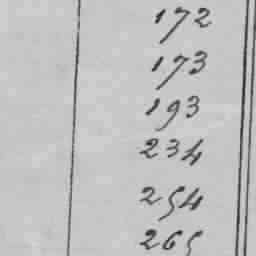 172
173
193
234
254
265